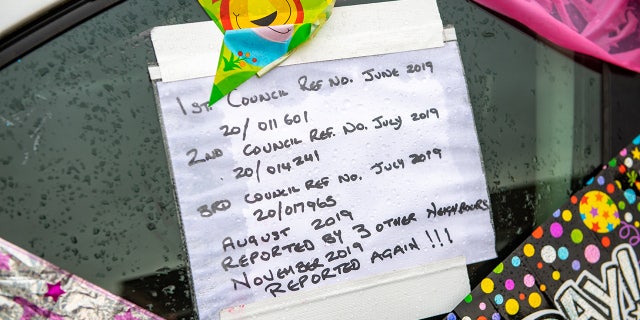 1ST COUNCIL REF NO. JUNE 2019
20/ 011601
2ND COUNCIL REF. NO. JULY 2019
20/014241
3RD COUNCIL REF NO. JULY 2019
20/017965
AUGUST 2019
REPORTED BY 3 OTHER NEIGHBOURS
NOVEMBER 2019
REPORTED AGAIN !!!
DAY!